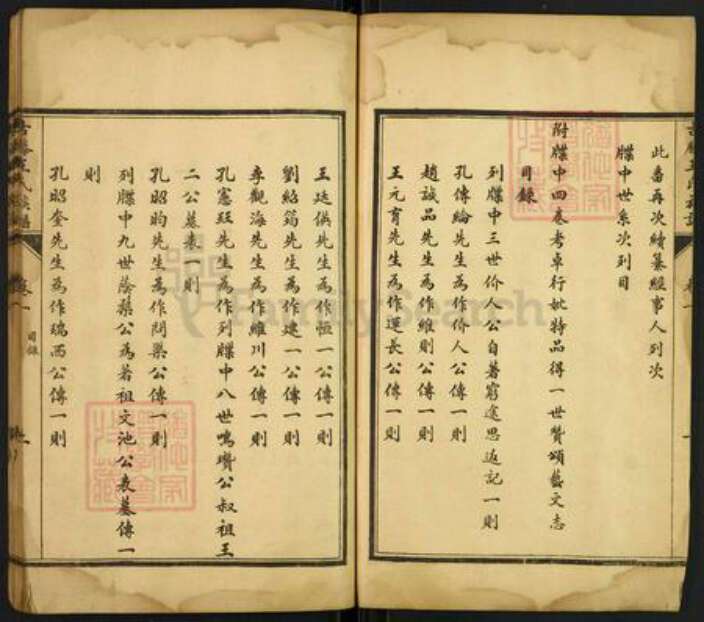 此番再次續纂經事人列次
牒中世系次列目
附牒中四表考卓行妣特品得一世贊頌藝文志
目錄
列牒中三世价人公自著窮途思返記一則
孔傳綸先生為作价人公傳一則
趙誠品先生為作維則公傳一則
王元育先生為作運長公傳一則
王延俱先生為作恒一公傳一則
劉紹筠先生為作建一公傳一則
李觀海先生為作維川公傳一則
孔憲珏先生為作列牒中八世鳴瓚公叔祖王
二公墓表一則
孔昭昀先生為作閃梁公傳一則
列牒中九世蔭棻公為若祖文池公表墓傳一
則
孔昭奎先生為作瑞西公傳一則
卷一
目錄
FamilySearch